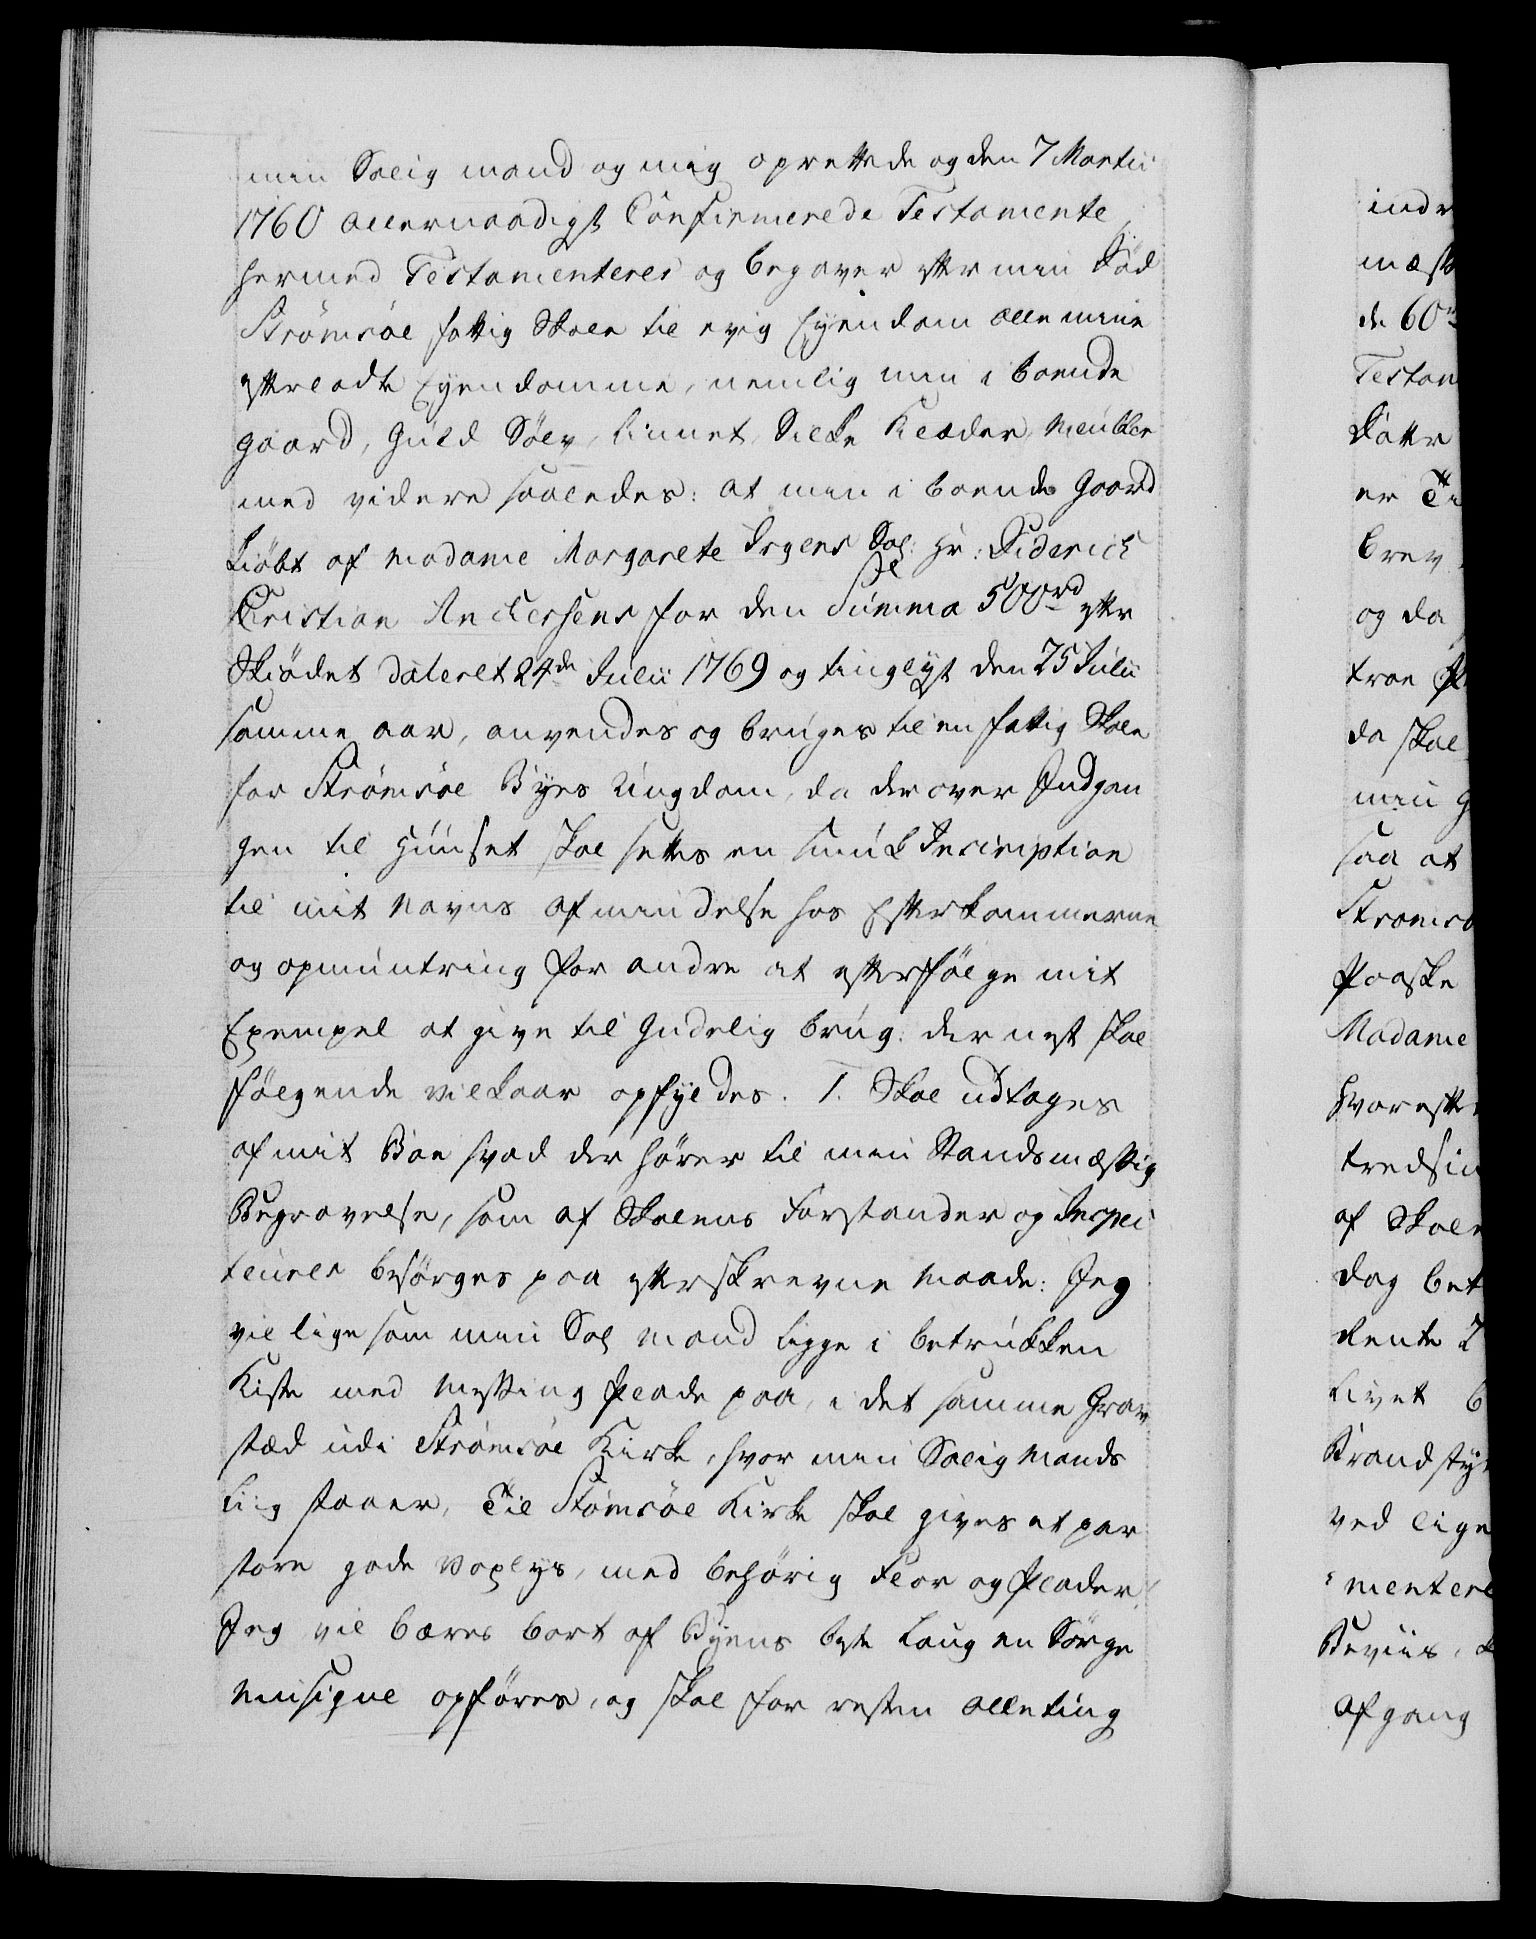 min Salig mand og mig oprettede og den 7 Martii
1760 allernaadigst Confirmerede Testamente,
hermed Testamenterer og begaver efter min Død
Strømsøe fattig Skole til evig Eyendom alle mine
efterladte Eyendomme, nemlig min i boende
gaard, Guld Sølv, Linnet, Silke Klæder, Meubler
med videre saaledes: at min i boende Gaard
kiøbt af Madame Margarete Irgens Sal: Hr: Diderich
Christian Anchersens for den Summa 500 rd efter
Skiødet dateret 24de Julii 1769 og tinglyst den 25 Julii
samme aar, anvendes og bruges til en fattig Skole
for Strømsøe Byes Ungdom, da der over Indgan
gen til Huuset skal settes en smuk Inscription
til mit Navns afmindelse hos Efterkommerne
og opmuntring for andre at efterfølge mit
Exempel at give til Gudelig brug: der nest skal
følgende vilkaar opfyldes. 1. Skal udtages
af mit Boe hvad der hører til min Standsmæssig
Begravelse, som af Skolens Forstander og Inspec
teurer besørges paa efterskrevne Maade: Jeg
vil lige som min Sal mand ligge i betrukken
Kiste med Messing Plade paa, i det samme Grav
stæd udi Strømsøe Kirke, hvor min Salig Mands
Liig staaer, Til Stømsøe Kirke skal gives et par
store gode Voxlys, med behørig Flor og Plader,
Jeg vil bæres bort af Byens beste Laug en Sørge
Musique opføres, og skal for resten alleting
indr
mæs
de 60
Testam
Datter
er Ti
brev
og da
troe
da skal
min G
saa at
Strømsø
Paaske
Madame
Hvorefter
tredsin
af Skole
dag bet
Rente 2
Livet 6
Brandsty
ved lige
mentere
Beviis,
afgang